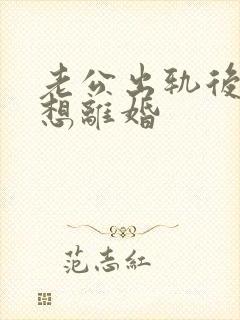 老公出轨後
想離婚
范志紅